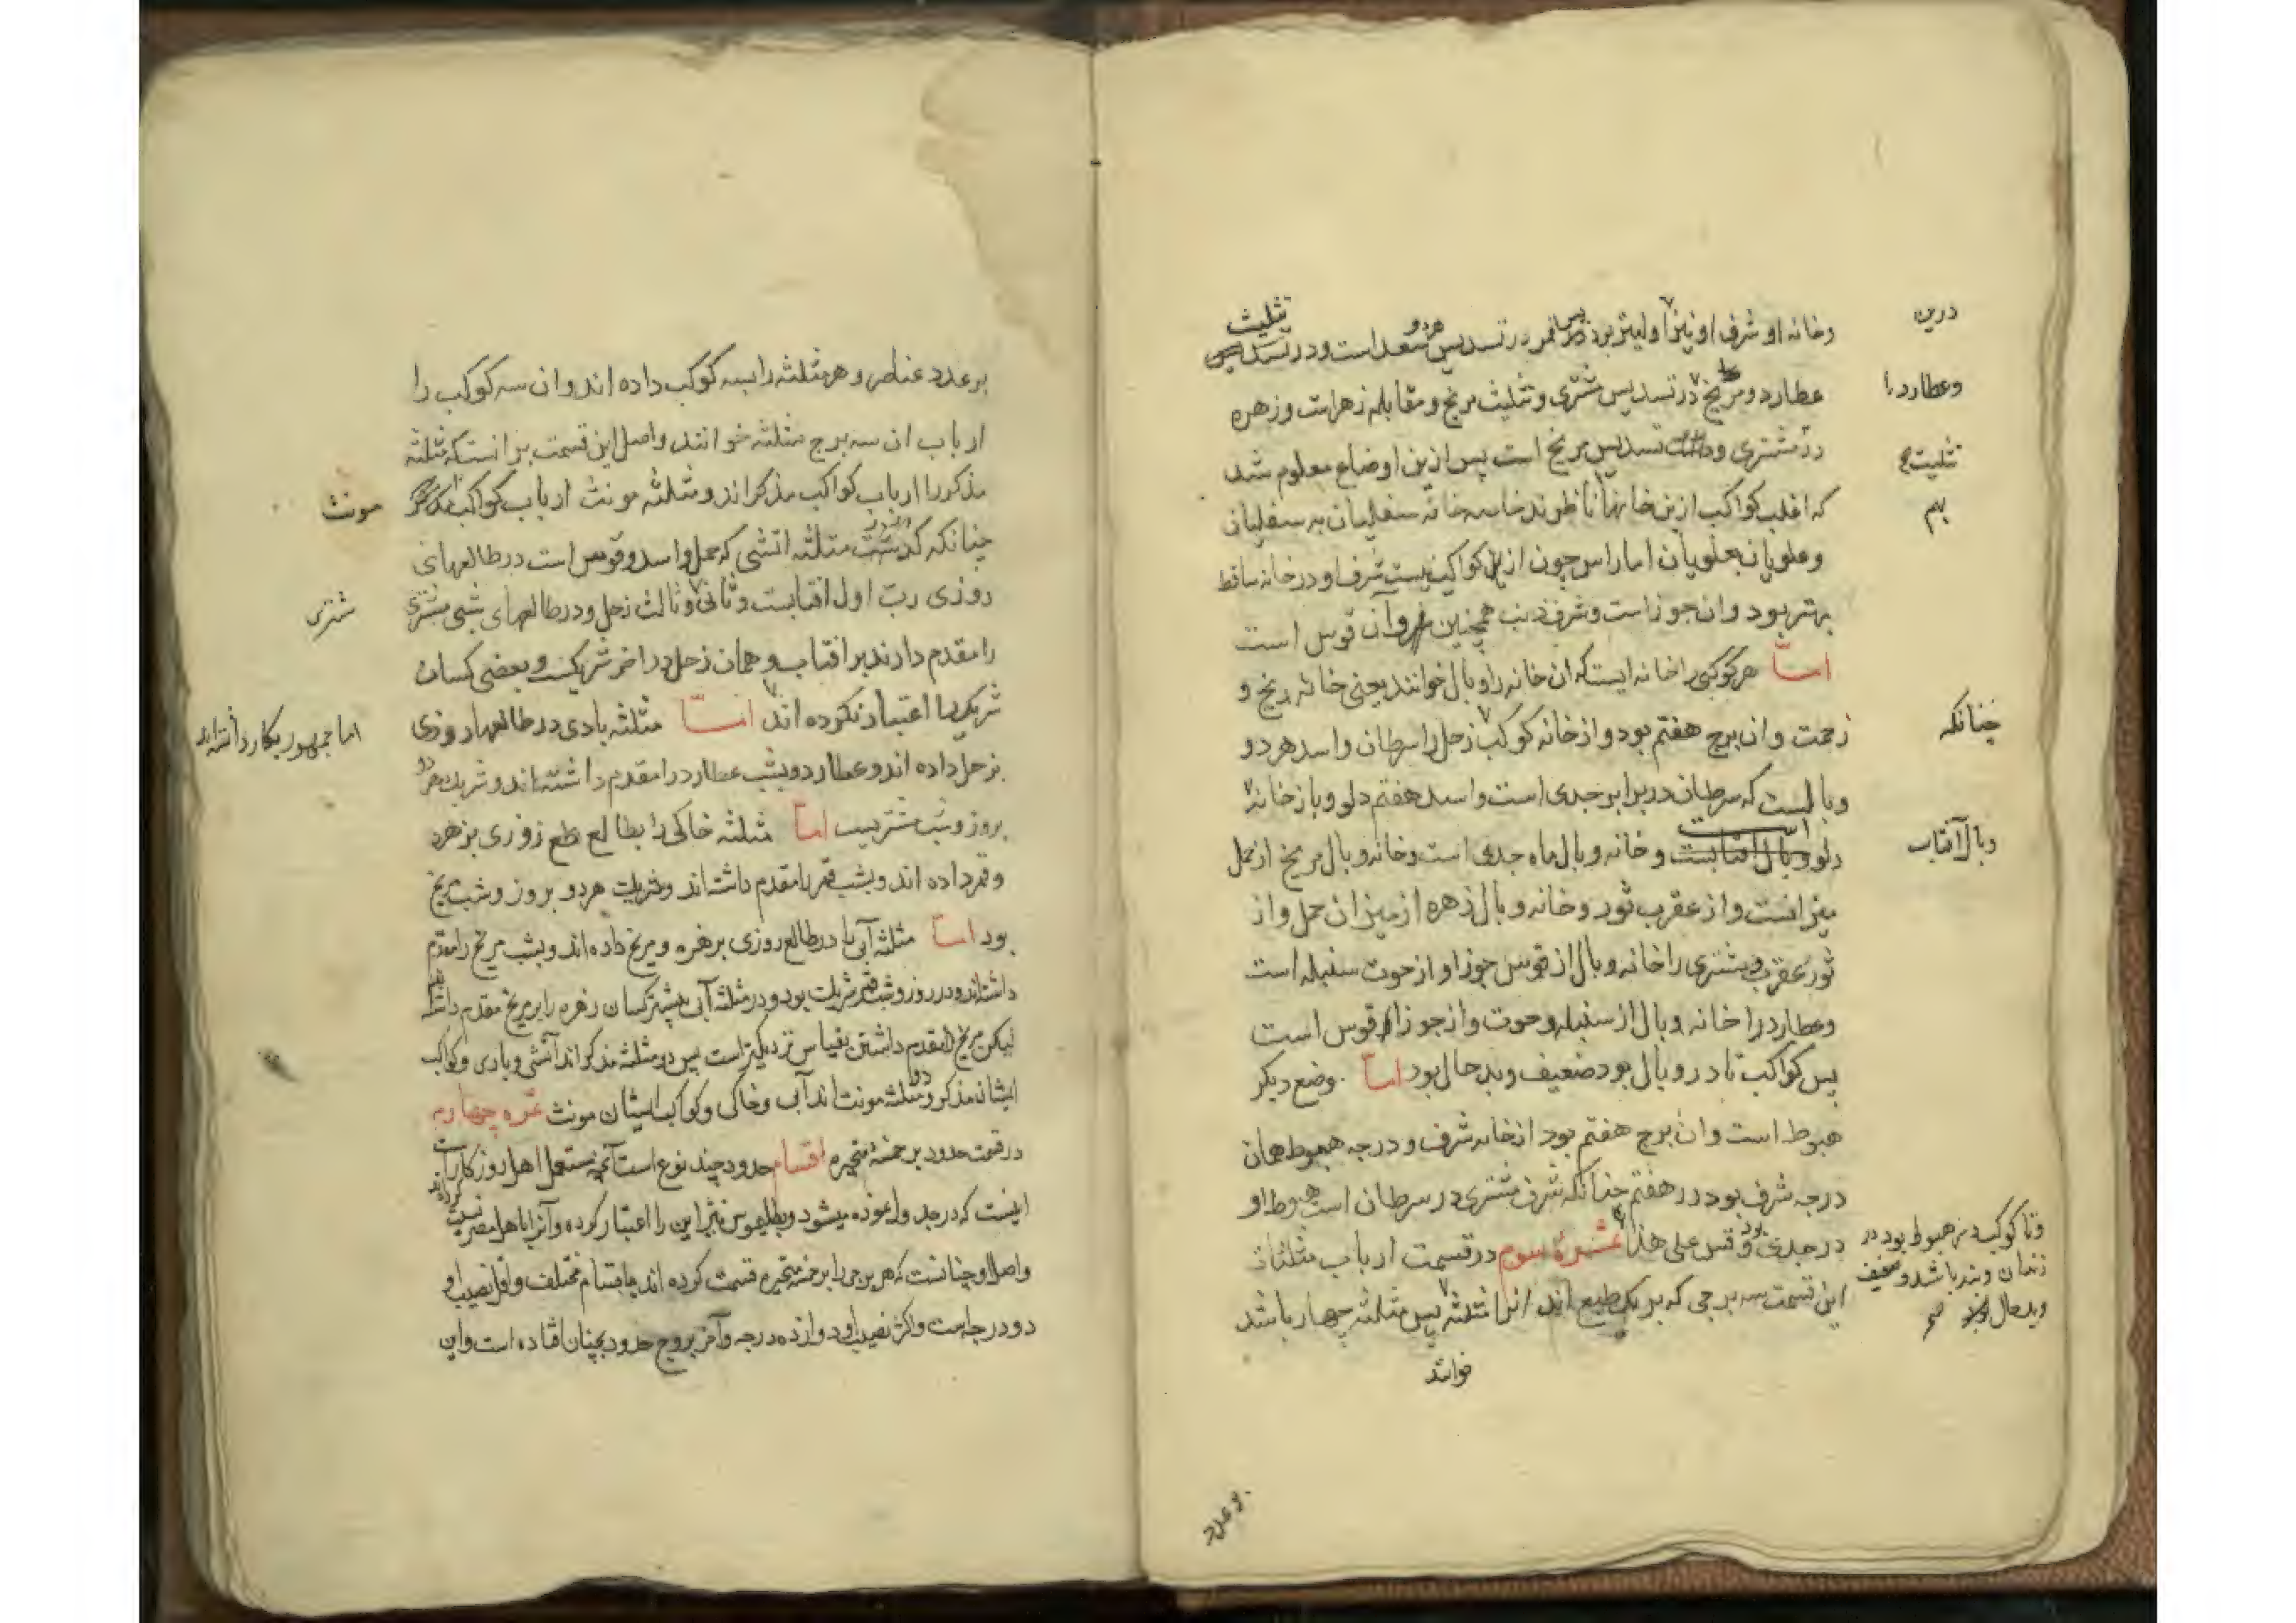 درین
وخانه او شرف او نیز اولیتر بود پس قمر در تسدیس هردو سعد است و در تثلیث
وعطارد را
عطارد و مریخ در تسدیس مشتری و تثلیث مریخ و مقابله زهراست و زهره
تثلیث
در مشتری و تسدیس مریخ است پس ازین اوضاع معلوم شد
بهم
که اغلب کواکب ازین خانها ناظرند خاصه خانه سفلیان به سفلیان
وعلویان بعلویان اما راس چون از کواکب نیست شرف او در خانه ساقط
بهتر بود وان جوزاست و شرف ذنب همچنین وآن قوس است
امّا هر کوکبی را خانه ایست که ان خانه را وبال خوانند یعنی خانه رنج و
چنانکه
زحمت وان برج هفتم بود و از خانه کوکب زحل را سرطان و اسد هر دو
وبالست که سرطان در برابر جدی است و اسد هفتم دلو و باز خانه
وبال آفتاب
دلو وبال افتابست و خانه وبال ماه جدی است و خانه وبال مریخ از حمل
میزانست و از عقرب ثور و خانه وبال زهره از میزان حمل و از
ثور عقرب و مشتری را خانه وبال از قوس جوزا و از حوت سنبله است
وعطارد را خانه وبال از سنبله حوت و از جوزا قوس است
پس کواکب تا در وبال بود ضعیف و بد حال بود امّا وضع دیکر
هبوط است وان برج هفتم بود از خانه شرف و درجه هبوط همان
درجه شرف بود در هفتم چنانکه شرف مشتری در سرطان است هبوط او
در جدی بود و قس علی هذا ثمره سوم در قسمت ارباب مثلثات
وتا کوکب در هبوط بود در
زندان و بند باشد و ضعیف
وبد حال
این قسمت سه برجی که بر یک طبع اند انرا مثلثه پس مثلثه چهار باشد
خوانند
بر عدد
بر عدد عناصر و هر مثلثه را بسه کوکب داده اند وان سه کوکب را
ارباب ان سه برج مثلثه خوانند و اصل این قسمت بر انست که مثلثه
مذکر را ارباب کواکب مذکر اند و مثلثه مونث ارباب کواکب
مونث
چنانکه کذشت مثلثه اتشی که حمل و اسد و قوس است در طالعهای
روزی ربّ اول افتابست و ثانی و ثالث زحل و در طالعهای شبی مشتری
مشتری
را مقدم دارند بر افتاب و همان زحل در اخر شریکست و بعضی کسان
شریک را اعتبار نکرده اند امّا مثلثه بادی در طالعها روزی
اما جمهور بکار داشته اند
بزحل داده اند و عطارد و بشب عطارد را مقدم داشته اند و شریک هر دو
بروز و شب مشتریست امّا مثلثه خاکی را بطالع روزی بزهره
وقمر داده اند و بشب قمر را مقدم داشته اند و شریک هر دو بروز و شب مریخ
بود امّا مثلثه آبی را در طالع روزی بزهره و مریخ داده اند و بشب مریخ را مقدم
داشته اند و در روز و شب قمر شریک بود و در مثلثه آبی بیشتر کسان زهره را بر مریخ مقدم داشته اند
لیکن مریخ را مقدم داشتن بقیاس نزدیکتر است پس دو مثلثه مذکر اند آتشی و بادی و کواکب
ایشان مذکر و دو مثلثه مونث اند آبی و خاکی و کواکب ایشان مونث ثمره چهارم
در قسمت حدود بر خمسه متحیره اقسام حدود چند نوع است آنچه مستعمل اهل روزکار است
اینست که در جدول نموده میشود و بطلمیوس نیز این را اعتبار کرده و آنرا باهل مصر نسبت کرده اند
واصل او چنانست که هر برجی را بر خمسه متحیره قسمت کرده اند باقسام مختلف و اقل نصیب او
دو درجه است و اکثر نصیب او دوازده درجه وآخر بروج حدود بچنان افتاده است واین